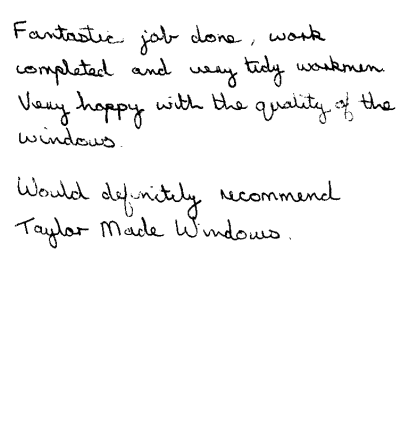 Fantastic job done, work
completed and very tidy workmen.
Very happy with the quality of the
windows.
Would definitely recommend
Taylor Made Windows.